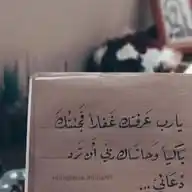 يارب عرفتك غفارا فجئتك
باكيا وحاشاك ربي أن ترد
دعائي ...